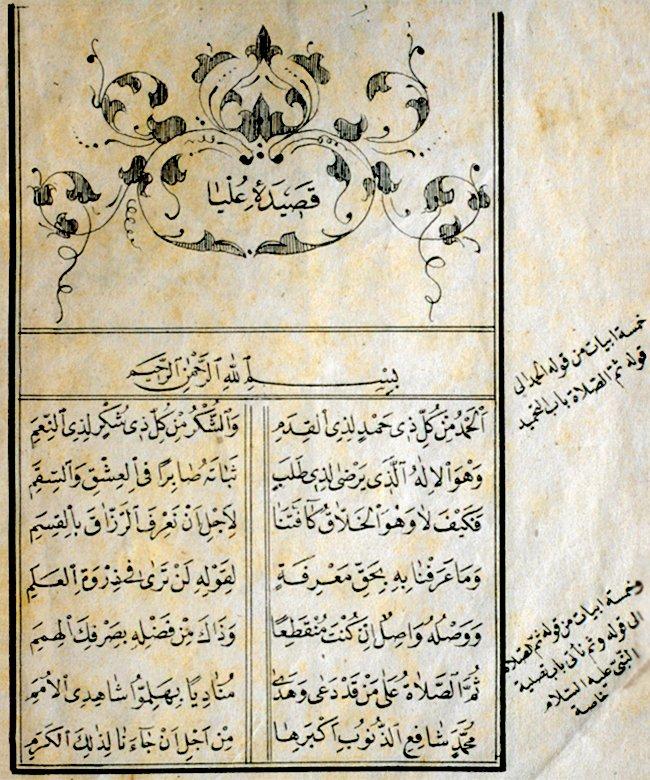 قَصِيدَۀِ عُلْيَا
بِسْمِ اللهِ الرَّحْمٰنِ الرَّحِيمِ
اَلْحَمْدُ مِنْ كُلِّ ذِي حَمْدٍ لِذِي الْقِدَمِ وَالشُّكْرُ مِنْ كُلِّ ذِي شُكْرٍ لِذِي النِّعَمِ
وَهْوَ الْاِلٰهُ الَّذِي يَرْضٰى لِذِي طَلَبٍ ثَبَاتَهُ صَابِرًا فِي الْعِشْقِ وَالسَّقَمِ
فَكَيْفَ لَا وَهْوَ الْخَلَّاقُ كَافَّتَنَا لِاَجْلِ اَنْ نَعْرِفَ الرَّزَّاقَ بِالْقِسَمِ
وَمَا عَرَفْنَا بِهِ بِحَقِّ مَعْرِفَةٍ لِقَوْلِهِ لَنْ تَرٰى فِي ذِرْوَةِ الْعَلَمِ
وَوَصْلُهُ وَاصِلٌ اِنْ كُنْتَ مُنْقَطِعًا وَذَاكَ مِنْ فَضْلِهِ بِصَرْفِكَ الْهِمَمِ
ثُمَّ الصَّلَاةُ عَلٰى مَنْ قَدْ دَعٰى وَهَدٰى مُنَادِيًا بِهَلُمُّوا شَاهِدِي الْاُمَمِ
مُحَمَّدٍ شَافِعِ الذُّنُوبِ اَكْبَرِهَا مِنْ اَجْلِ اَنْ جَاءَنَا لِذٰلِكَ الْكَرَمِ
خمسة ابيات من قوله الحمد الى
قوله ثم الصلاة باب التحميد
وخمسة ابيات من قوله ثم الصلاة
الى قوله وثم نأتى باب تصلية
النبى عليه السلام
خاصة